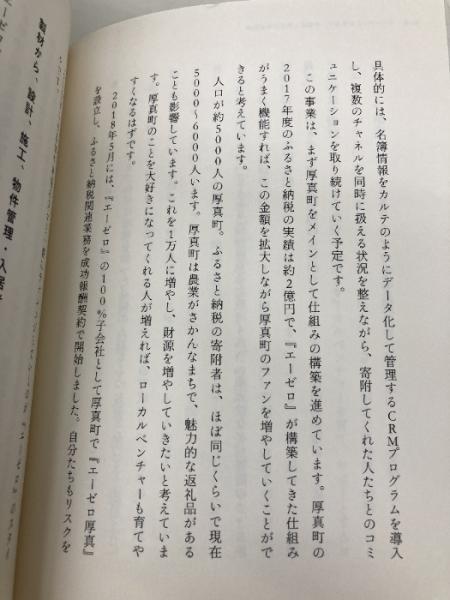 具体的には、名簿情報をカルテのようにデータ化して管理するCRMプログラムを導入
し、複数のチャネルを同時に扱える状況を整えながら、寄附してくれた人たちとのコミ
ュニケーションを取り続けていく予定です。
この事業は、まず厚真町をメインとして仕組みの構築を進めています。厚真町の
2017年度のふるさと納税の実績は約2億円で、『エーゼロ』が構築してきた仕組み
がうまく機能すれば、この金額を拡大しながら厚真町のファンを増やしていくことがで
きると考えています。
人口が約5000人の厚真町。ふるさと納税の寄附者は、ほぼ同じくらいで現在
5000〜6000人います。厚真町は農業がさかんなまちで、魅力的な返礼品がある
ことも影響しています。これを1万人に増やし、財源を増やしていきたいと考えていま
す。厚真町のことを大好きになってくれる人が増えれば、ローカルベンチャーも育てや
すくなるはずです。
2018年5月には、『エーゼロ』の100%子会社として厚真町で『エーゼロ厚真』
を設立し、ふるさと納税関連業務を成功報酬契約で開始しました。自分たちもリスクを
製材から、設計、施工、物件管理・入居